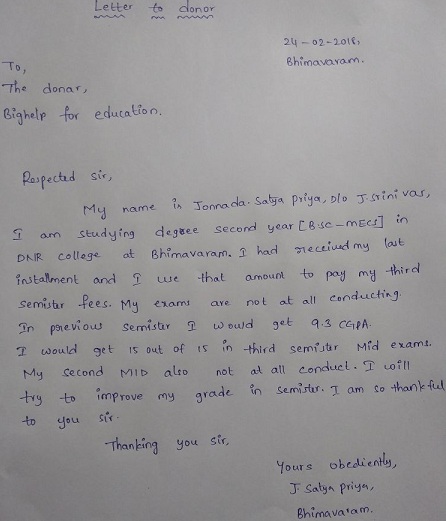 Letter to donor
24-02-2018,
Bhimavaram.
To,
The donar,
Bighelp for education.
Respected sir,
My name is Jonnada. Satya Priya, D/o J. Srinivas,
I am studying degree second year [B.SC-MECS] in
DNR college at Bhimavaram. I had received my last
installment and I use that amount to pay my third
semister fees. My exams are not at all conducting.
In previous semister I would get 9.3 CGPA.
I would get 15 out of 15 in third semister Mid exams.
My second MID also not at all conduct. I will
try to improve my grade in semister. I am so thankful
to you sir.
Thanking you sir,
Yours obediently,
J. Satya Priya,
Bhimavaram.